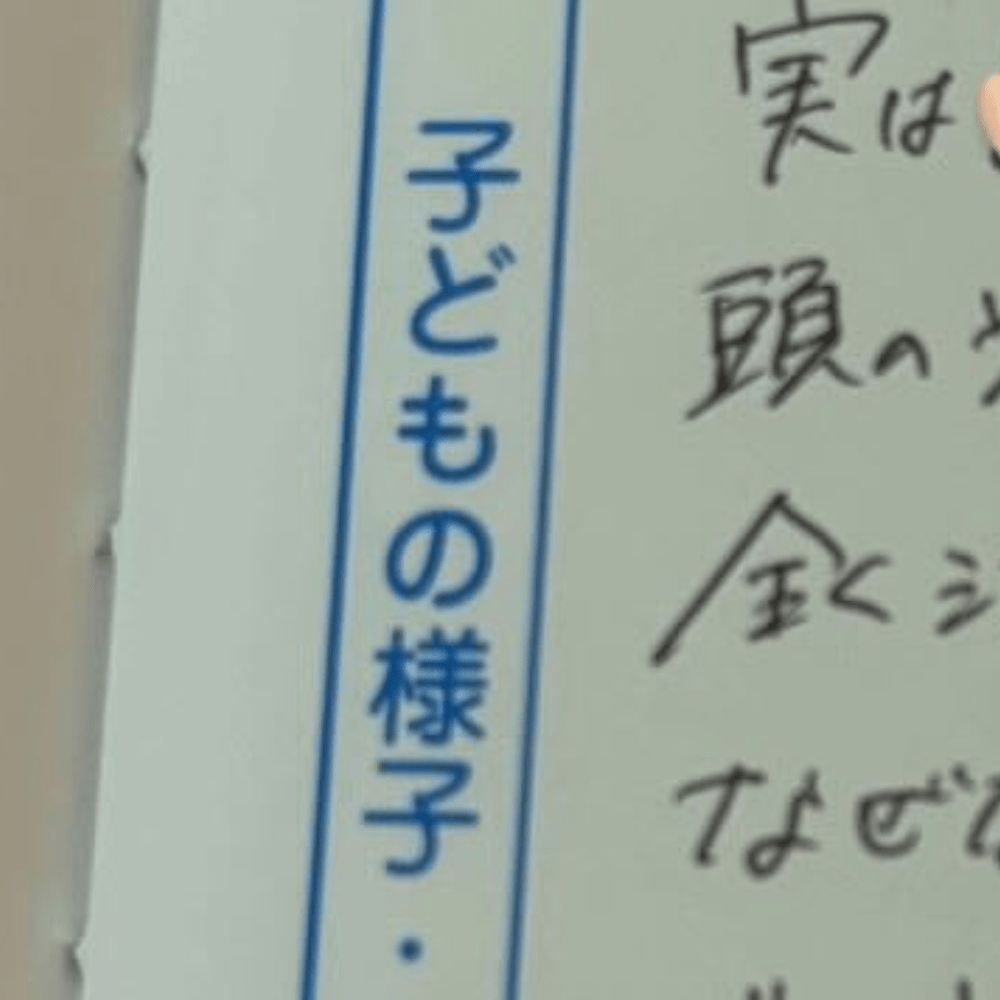 子どもの様子・
実は
頭の
全く
なぜ